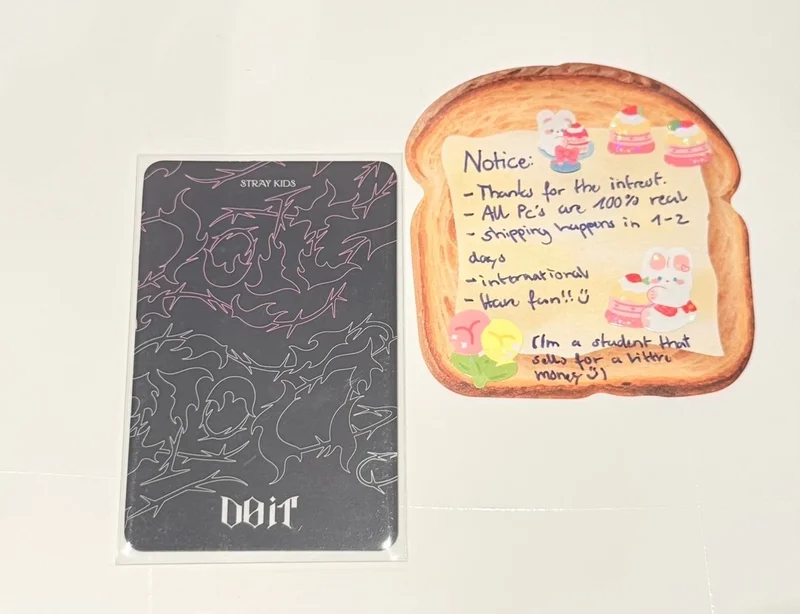 STRAY KIDS
DO iT
Notice:
- Thanks for the intrest.
- All Pc's are 100% real
- shipping happens in 1-2
days
- international
- Have fun!! :)
(I'm a student that
sells for a little
money :))